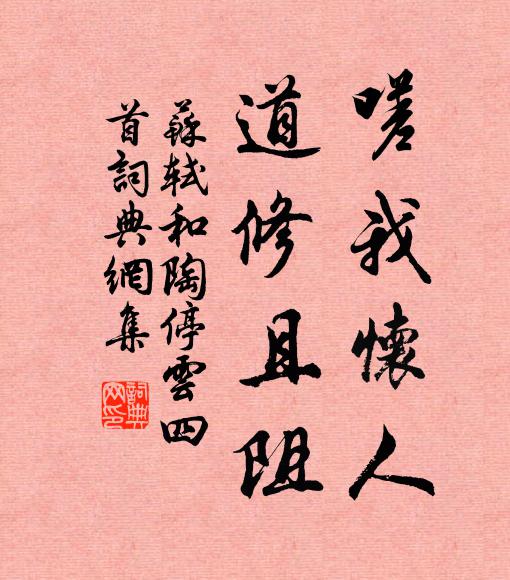 嗟我懷人
道修且阻
蘇軾和陶停雲四
首詞典網集
詞典
网印